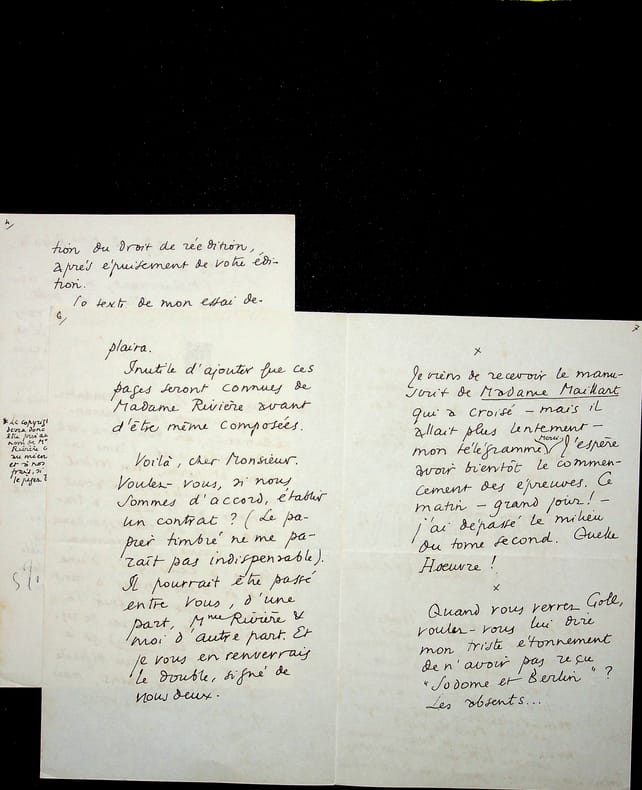 4/
tion du Droit de réédition,
après épuisement de votre édi-
tion.
Le texte de mon essai de-
* Le copyright
devra donc
être pris au
nom de Me
Rivière &
au mien
et à nos
frais, si
le jugez
5%
6/
plaira.
Inutile d'ajouter que ces
pages seront connues de
Madame Rivière avant
d'être même composées.
Voilà, cher Monsieur.
Voulez-vous, si nous
sommes d'accord, établir
un contrat ? (Le pa-
pier timbré ne me pa-
raît pas indispensable).
Il pourrait être passé
entre vous, d'une
part, Mme Rivière &
moi d'autre part. Et
je vous en renverrais
le double, signé de
nous deux.
7/
x
Je viens de recevoir le manu-
scrit de Madame Maillart
qui a croisé – mais il
allait plus lentement –
mon télégramme. Merci. J'espère
avoir bientôt le commen-
cement des épreuves. Ce
matin – grand jour ! –
j'ai dépassé le milieu
du tome second. Quelle
Hœuvre !
x
Quand vous verrez Goll,
voulez-vous lui dire
mon triste étonnement
de n'avoir pas reçu
"Sodome et Berlin" ?
Les absents...